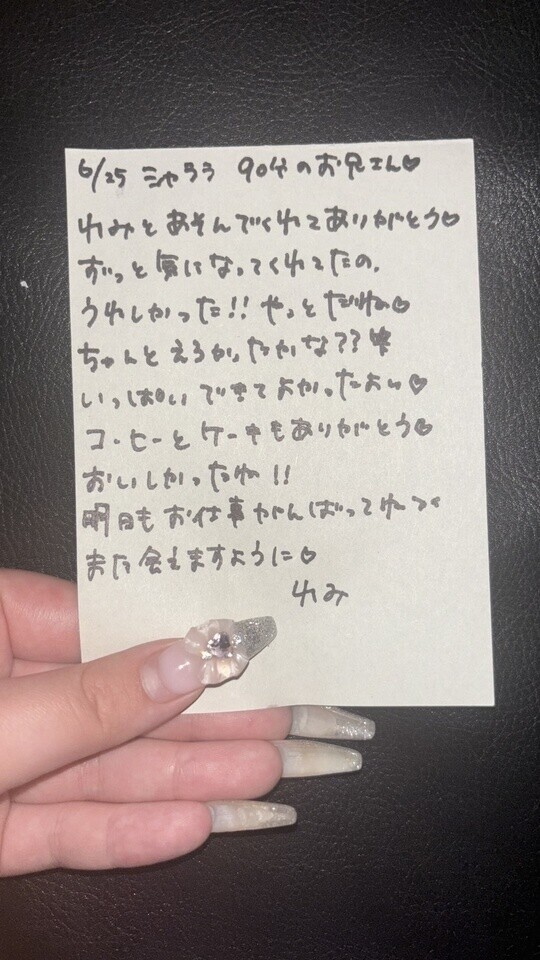 6/25 シャララ 90分のお兄さん♡
れみとあそんでくれてありがとう♡
ずっと気になってくれてたの、
うれしかった!! やっと だね♡
ちゃんと えろかったかな??
いっぱいできてよかったよぉ♡
コーヒーとケーキもありがとう♡
おいしかったね!!
明日もお仕事がんばってね><
また会えますように♡
れみ